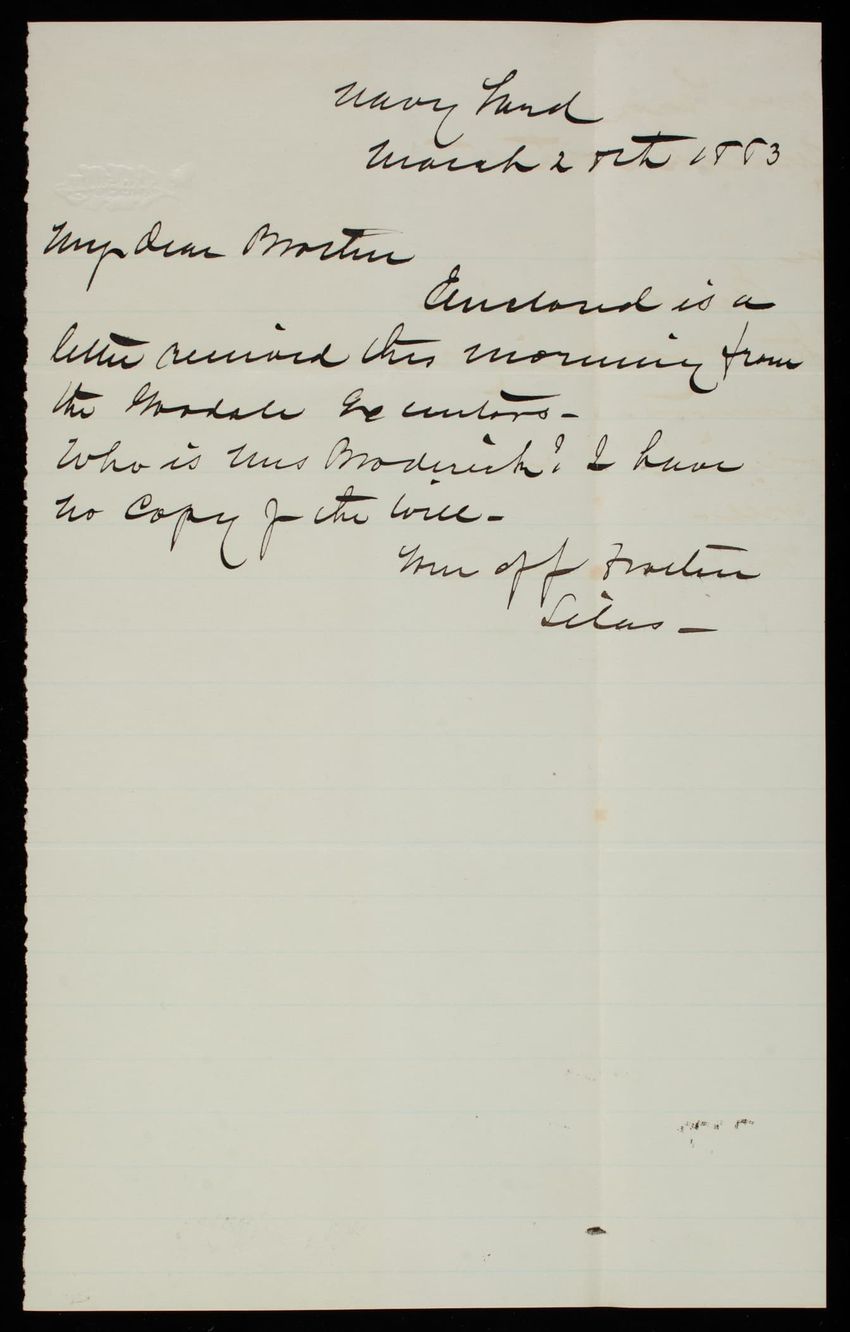 Navy Yard
March 28th 1883
My dear Brother
Enclosed is a
letter received this morning from
the Goodale Executors -
Who is Mrs Broderick? I have
no copy of the will -
Your aff Brother
Silas -